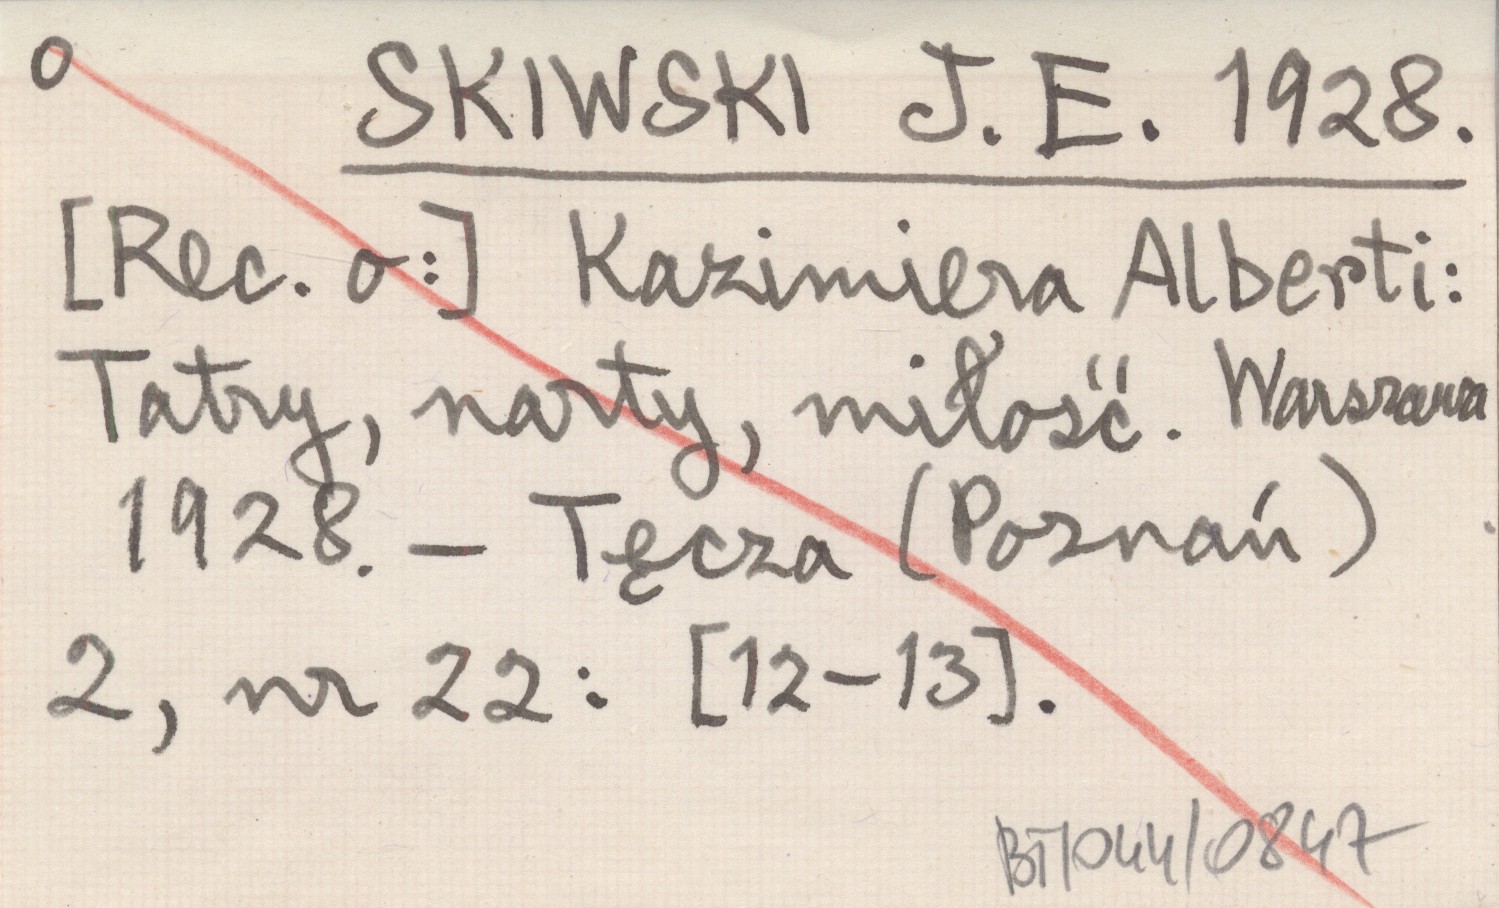 o SKIWSKI J. E. 1928.
[Rec. o:] Kazimiera Alberti:
Tatry, narty, miłość. Warszawa
1928. – Tęcza (Poznań)
2, nr 22: [12–13].
BT/044/0847